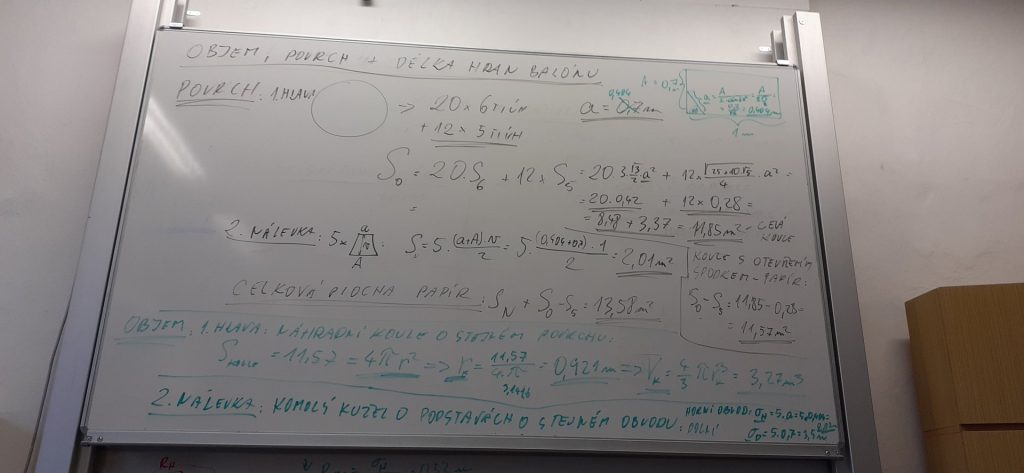 OBJEM, POVRCH + DÉLKA HRAN BALÓNU
POVRCH: 1. HLAVA → 20 × 6TIÚH
+ 12 × 5TIÚH
a = 0,7 m
0,404
A = 0,7
1 m
S₀ = 20.S₆ + 12 × S₅ = 20.3 √3/2 a² + 12 × √(25+10√5)/4 . a² =
= 20.0,42 + 12 × 0,28 =
= 8,48 + 3,37 = 11,85 m² - CELÁ KOULE
2. NÁLEVKA: 5 × a A : S = 5.(a+A).N/2 = 5.(0,404+0,7).1/2 = 2,01 m²
KOULE S OTEVŘENÍM
SPODKEM - PAPÍR:
S₀ - S₅ = 11,85 - 0,28 =
= 11,57 m²
CELKOVÁ PLOCHA PAPÍR: S_N + S₀ - S₅ = 13,58 m²
OBJEM: 1. HLAVA: NÁHRADNÍ KOULE O STEJNÉM POVRCHU:
S_KOULE = 11,57 = 4πr² => r_K = 11,57/4.π = 0,921 m => V_K = 4/3 π r_K³ = 3,27 m³
3,1416
2. NÁLEVKA: KOMOLÝ KUŽEL O PODSTAVÁCH O STEJNÉM OBVODU:
HORNÍ OBVOD: σ_H = 5.a =
DOLNÍ σ_D = 5.0,7 = 3,5 m